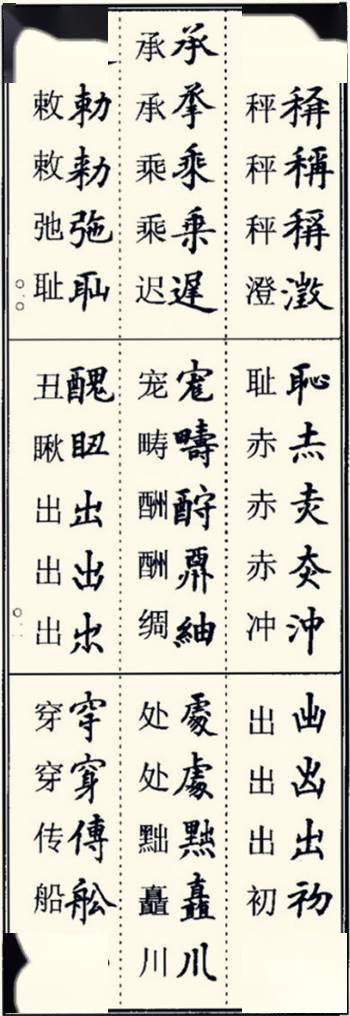 稱稱稱澂
秤秤秤澄
承承乘乗遲
承承乘乘迟
勅勑弛耻
敕敕弛耻
恥赤灻沖
耻赤赤赤冲
疇酧紬
宠畴酬酬绸
醜出出出
丑瞅出出出
出出出初
出出出初
處處黜矗川
处处黜矗川
穿穿傳舩
穿穿传船